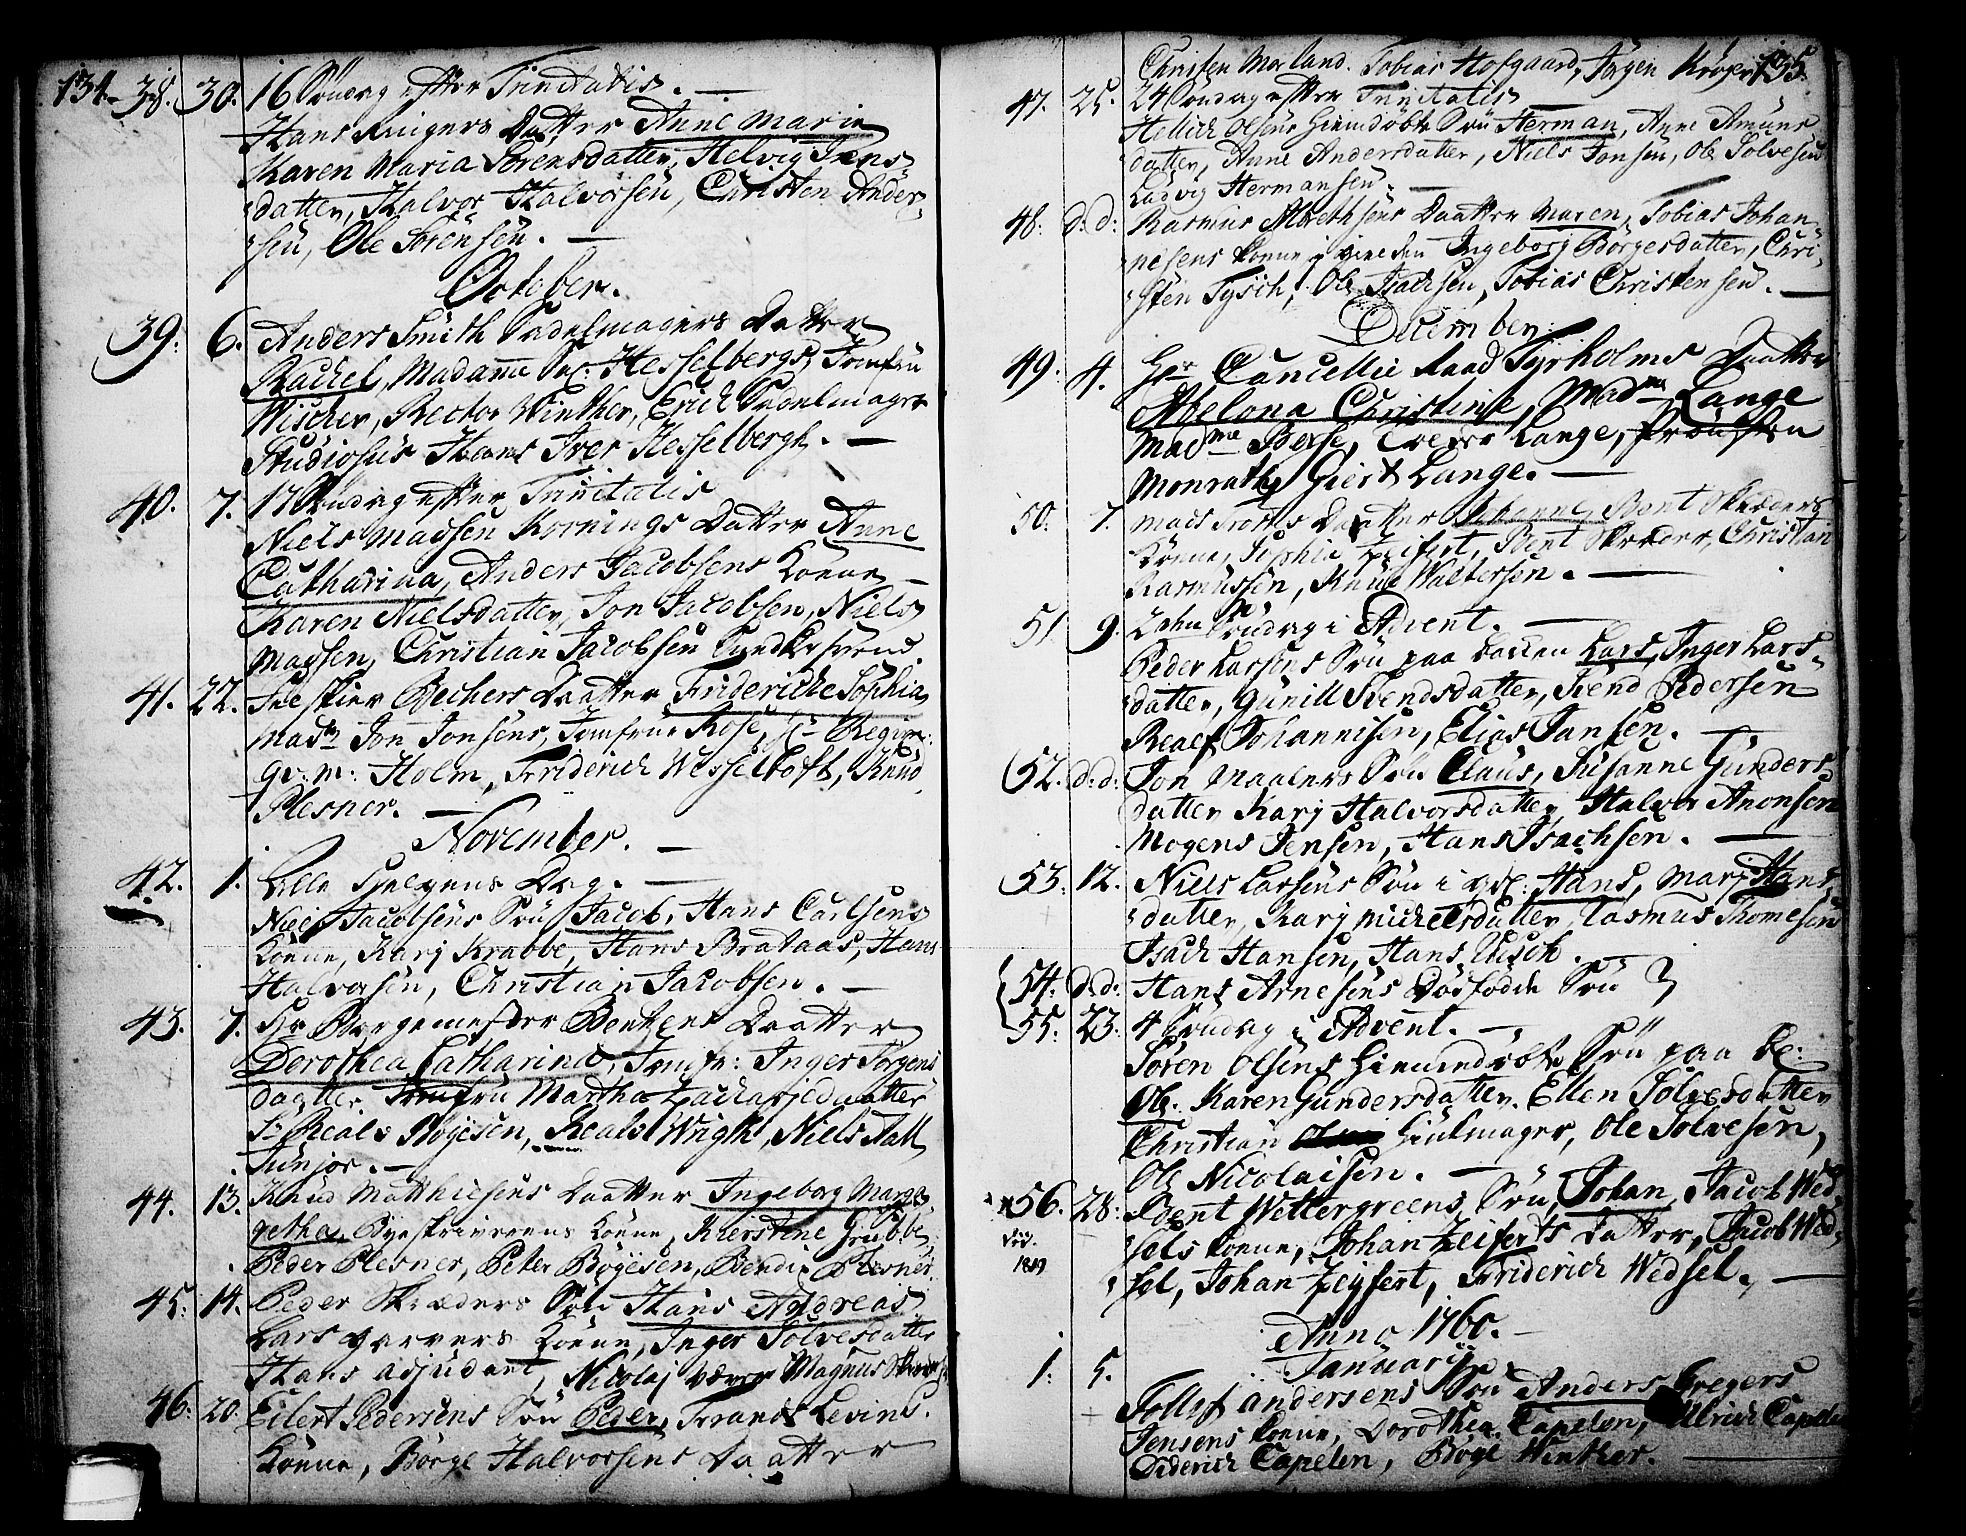 134. 38. 30. 16 Söndag efter Trinitatis.
Hans Daatter Anne Marie
Karen Maria Sörensdatter, Helvig Jens
datter, Halvor Halvorsen, Christen Ander
sen, Ole Sörensen.
October.
39. 6. Anders Smith Sadelmagers Datter
Rachel, Madame Hesselbergs, Jomfru
Wischer, Rector Winther, Erich Sadelmager
Studiosus Hans Iver Hesselbergh.
40. 7. 17 Söndag efter Trinitatis
Niels Madsen Kornings Datter Anne
Catharina, Anders Jacobsens Kone
Karen Nielsdatter, Jon Jacobsen, Niels
Madsen, Christian Jacobsen
41. 22. Bechers Daatter Frideriche Sophia
Mad Jon Jonsens, Jomfru Rose, Hr Regim:
qv: m: Holm, Friderich Wesseltoft, Knud
Plesner.
November.
42. 1. Alle Helgens Dag.
Niels Jacobsens Sön Jacob, Hans Carlsens
Kone, Karj Krabbe, Hans Brataas, Hans
Halvorsen, Christian Jacobsen.
43. 7. Hr Borgemester Bentzens Daatter
Dorothea Catharina, Jomfr: Inger Jörgens
daatter, Jomfru Martha Zachariædaatter
Sr Reals Böyesen, Reals Wright, Niels Aall
Junior.
44. 13. Knud Matthiesens Daatter Ingeborg Marge
getha, Byeskriverens Kone, Kierstine Grubbe
Peder Plesner, Peter Böyesen, Bendix Plesner.
45. 14. Peder Skræders Sön Hans Andreas
Lars Garvers Kone, Inger Solvesdatter
Hans Adjudant, Nicolaj Magnus
46. 20. Eilert Pedersens Sön Peder, Frands Levins
Kone, Börge Halvorsens Daatter
Christen Morland. Tobias Hofgaard, Jörgen Kröger 135.
47. 25. 24 Söndag efter Trinitatis
Hellich Olsens Hiemdöbte Sön Herman, Anne Amuns
datter, Anne Andersdatter, Niels Jonsen, Ole Solvesen
Ludvig Hermansen.
48. d: d: Rasmus Albrethsens Daatter Maren, Tobias Johan
nesens Kone Ingeborj Börgesdatter, Chri
sten Tysch, Ole Isachsen, Tobias Christensen.
December.
49. 4. Hr Cancellie Raad Tyrholms Daatter
Abelona Christine, Madme Lange
Madme Borse, Lange,
Monrath, Giert Lange.
50. 7. Mads Daatter Johanne, Bent Skræders
Kone, Sophie Zeifert, Bent Skræder, Christian
Rasmussen, Knud Waltersen.
51. 9. 2den Söndag i Advent.
Peder Larsens Sön paa Lars, Inger Lars
datter, Gunill Svendsdatter, Svend Pedersen
Johannisen, Elias Jansen.
52. d: d: Jon Maalers Sön Claus, Susanne Gunders
datter Karj Halvorsdatter, Halvor Anonsen
Mogens Jensen, Hans Isachsen.
53. 12. Niels Larsens Sön i Hans, Marj Hans
datter, Karj Michelsdatter, Rasmus Thomesen
Isach Hansen, Hans
54. d: d: Hans Arnesens Dödfödde Sön
55. 23. 4 Söndag i Advent.
Sören Olsens Hiemmdöbte Sön paa
Ole. Karen Gundersdatter. Ellen Solvesdatter
Christian Hiulmager, Ole Solvesen,
Ole Nicolaisen.
56. 28. Wettergreens Sön Johan, Jacob Wed
Vid.
1809
sels Kone, Johan Zeiferts Datter, Jacob Wed
sel, Johan Zeyfert, Friderich Wedsel.
Anno 1760.
Januarij.
1. 5. Tollef Andersens Sön Anders, Gregers
Jensens Kone, Dorothea Capelen, Ulrich Capelen
Diderich Capelen, Böge Winther.